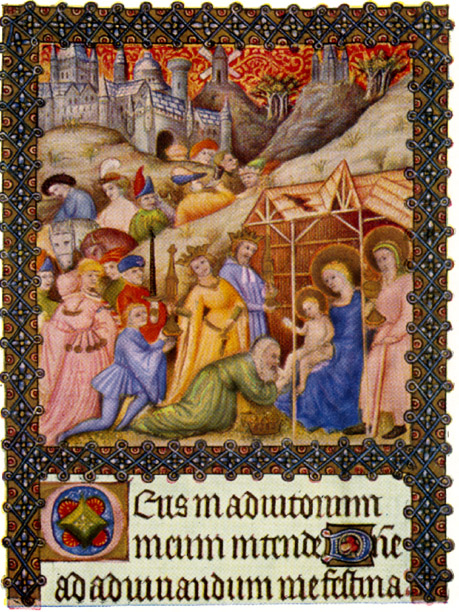 Deus in adiutorium
meum intende Dñe
ad adiuuandum me festina.